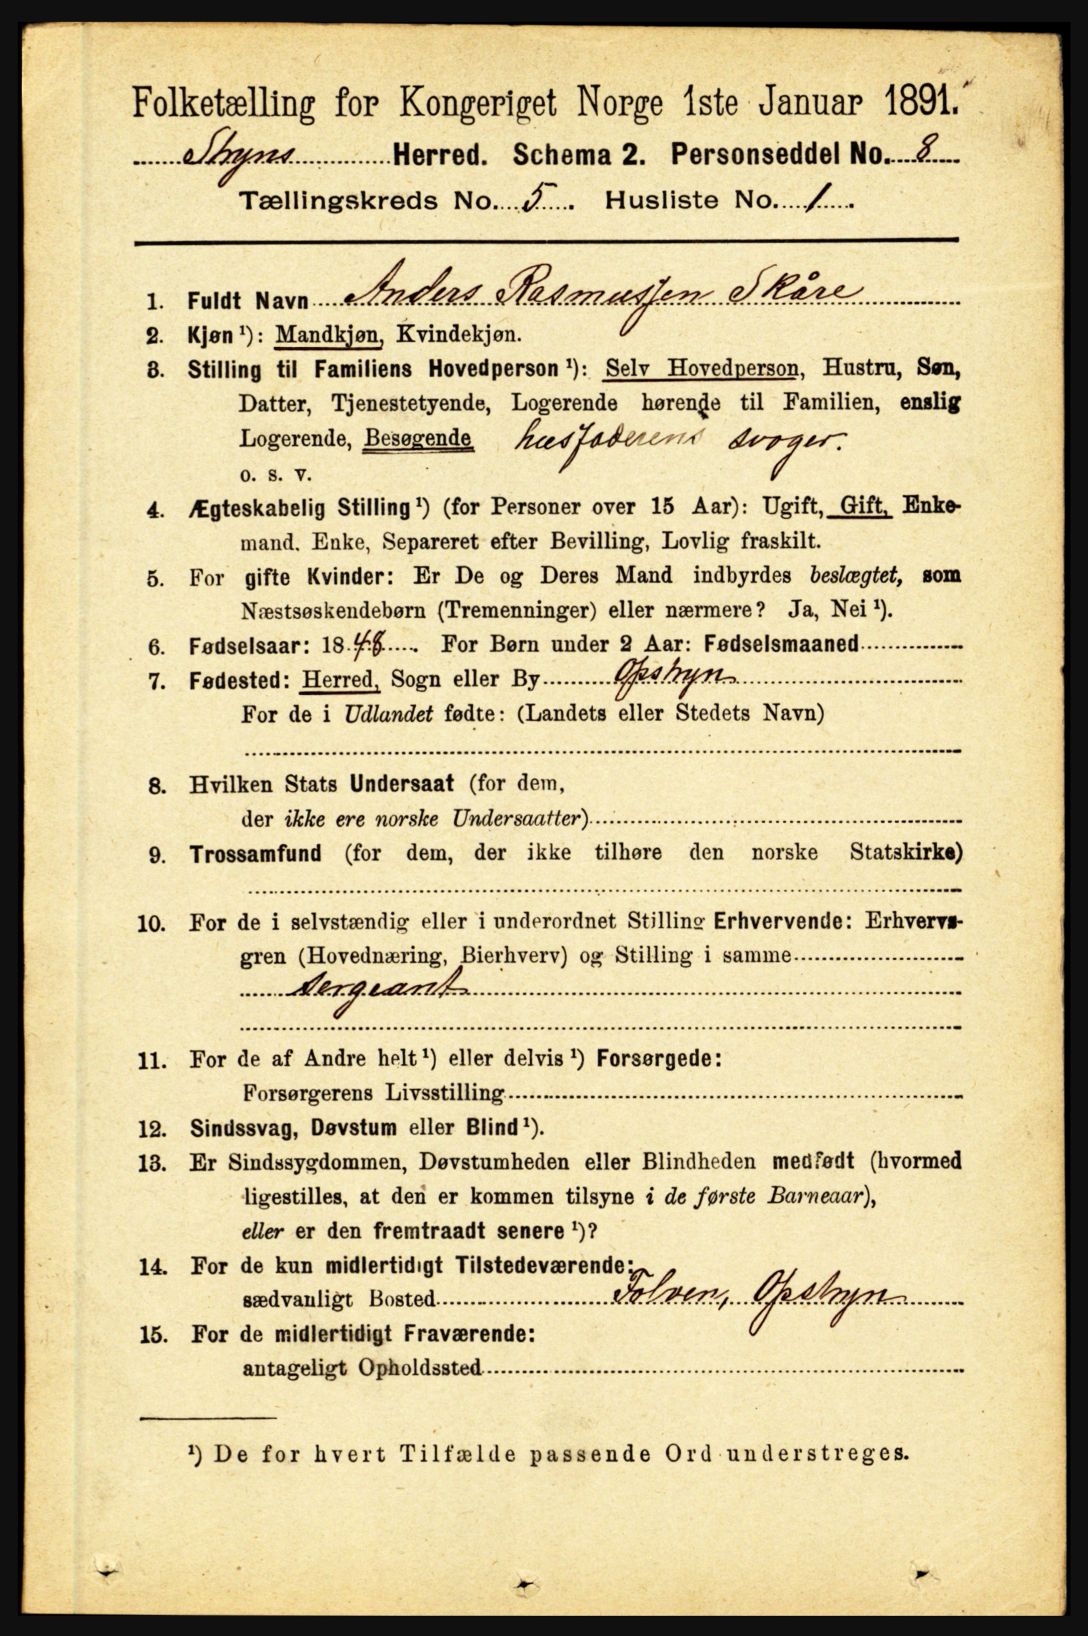 Folketælling for Kongeriget Norge 1ste Januar 1891.
Stryns Herred. Schema 2. Personseddel No. 8
Tællingskreds No. 5. Husliste No. 1.
1. Fuldt Navn Anders Rasmussen Skåre
2. Kjøn ¹): Mandkjøn, Kvindekjøn.
3. Stilling til Familiens Hovedperson ¹): Selv Hovedperson, Hustru, Søn,
Datter, Tjenestetyende, Logerende hørende til Familien, enslig
Logerende, Besøgende husfaderens svoger.
o. s. v.
4. Ægteskabelig Stilling ¹) (for Personer over 15 Aar): Ugift, Gift, Enke-
mand, Enke, Separeret efter Bevilling, Lovlig fraskilt.
5. For gifte Kvinder: Er De og Deres Mand indbyrdes beslægtet, som
Næstsøskendebørn (Tremenninger) eller nærmere? Ja, Nei ¹).
6. Fødselsaar: 1848. For Børn under 2 Aar: Fødselsmaaned
7. Fødested: Herred, Sogn eller By Opstryn
For de i Udlandet fødte: (Landets eller Stedets Navn)
8. Hvilken Stats Undersaat (for dem,
der ikke ere norske Undersaatter)
9. Trossamfund (for dem, der ikke tilhøre den norske Statskirke)
10. For de i selvstændig eller i underordnet Stilling Erhvervende: Erhvervs-
gren (Hovednæring, Bierhverv) og Stilling i samme
sergeant
11. For de af Andre helt ¹) eller delvis ¹) Forsørgede:
Forsørgerens Livsstilling
12. Sindssvag, Døvstum eller Blind ¹).
13. Er Sindssygdommen, Døvstumheden eller Blindheden medfødt (hvormed
ligestilles, at den er kommen tilsyne i de første Barneaar),
eller er den fremtraadt senere ¹)?
14. For de kun midlertidigt Tilstedeværende:
sædvanligt Bosted Folven, Opstryn
15. For de midlertidigt Fraværende:
antageligt Opholdssted
¹) De for hvert Tilfælde passende Ord understreges.